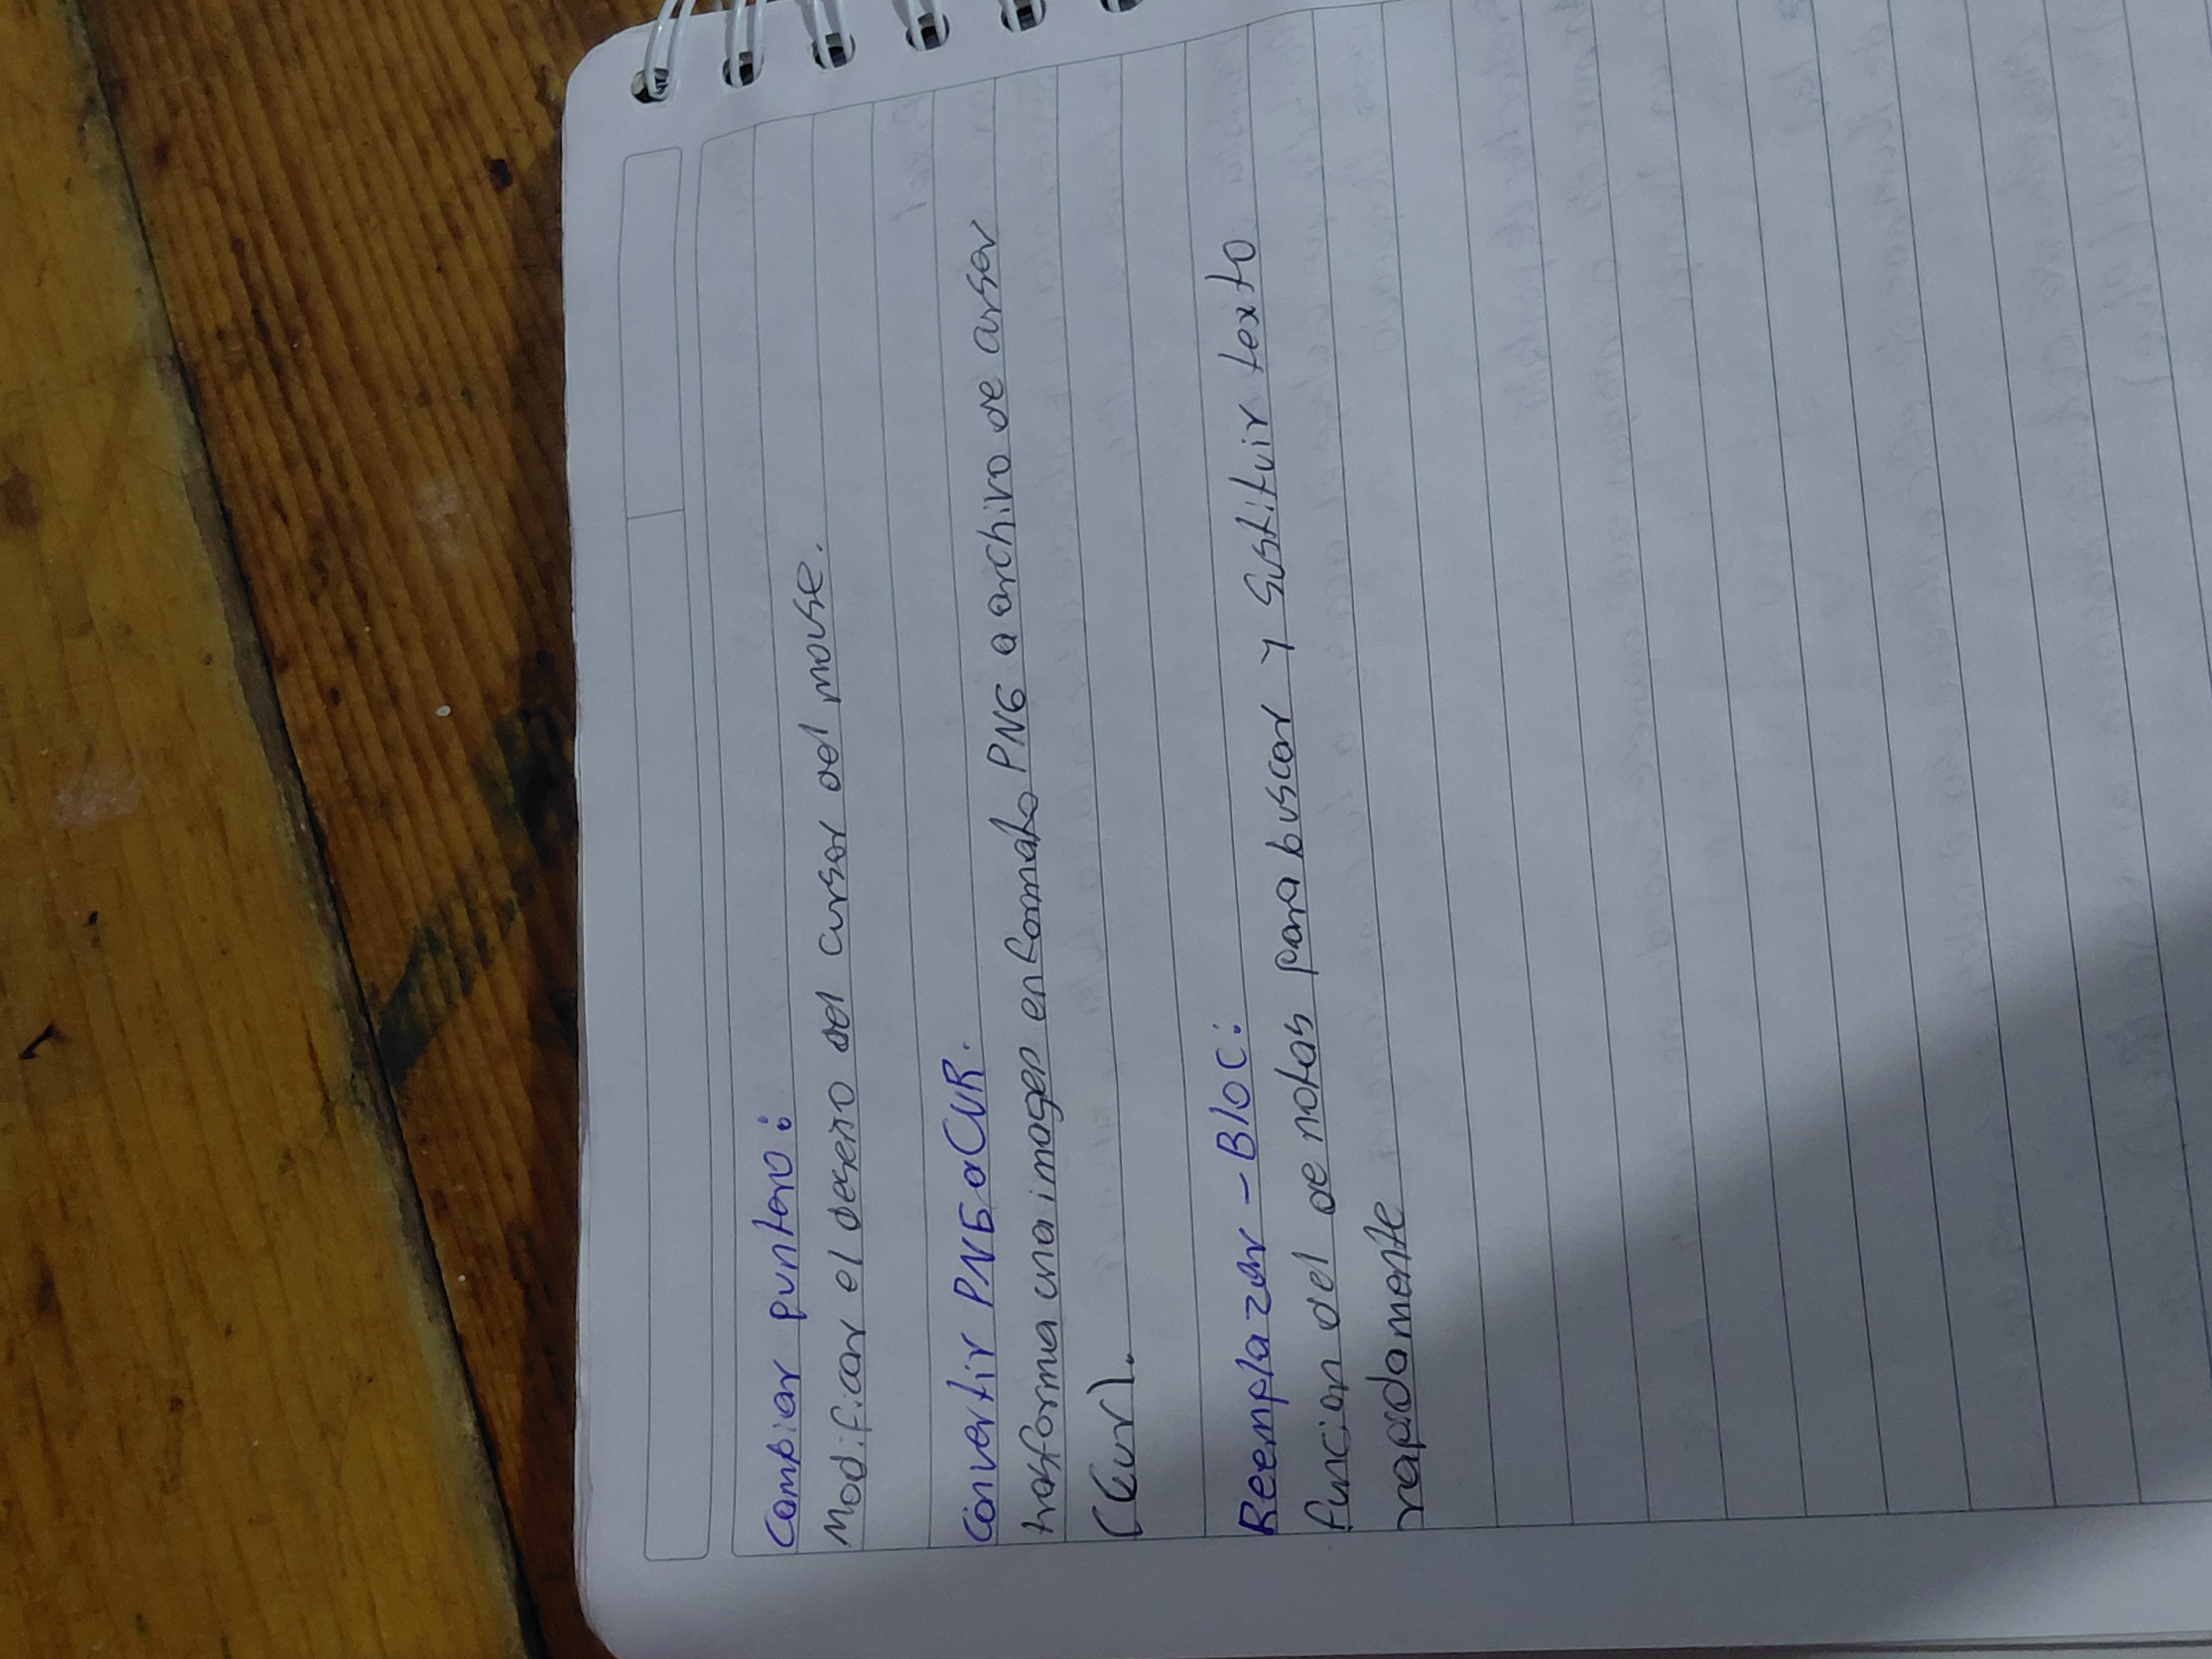 Cambiar puntero:
Modificar el diseño del cursor del mouse.
Convertir PNG a CUR.
trasforma una imagen en formato PNG a archivo de cursor
(Cur).
Reemplazar - Bloc:
funcion del de notas para buscar y sustituir texto
rapidamente